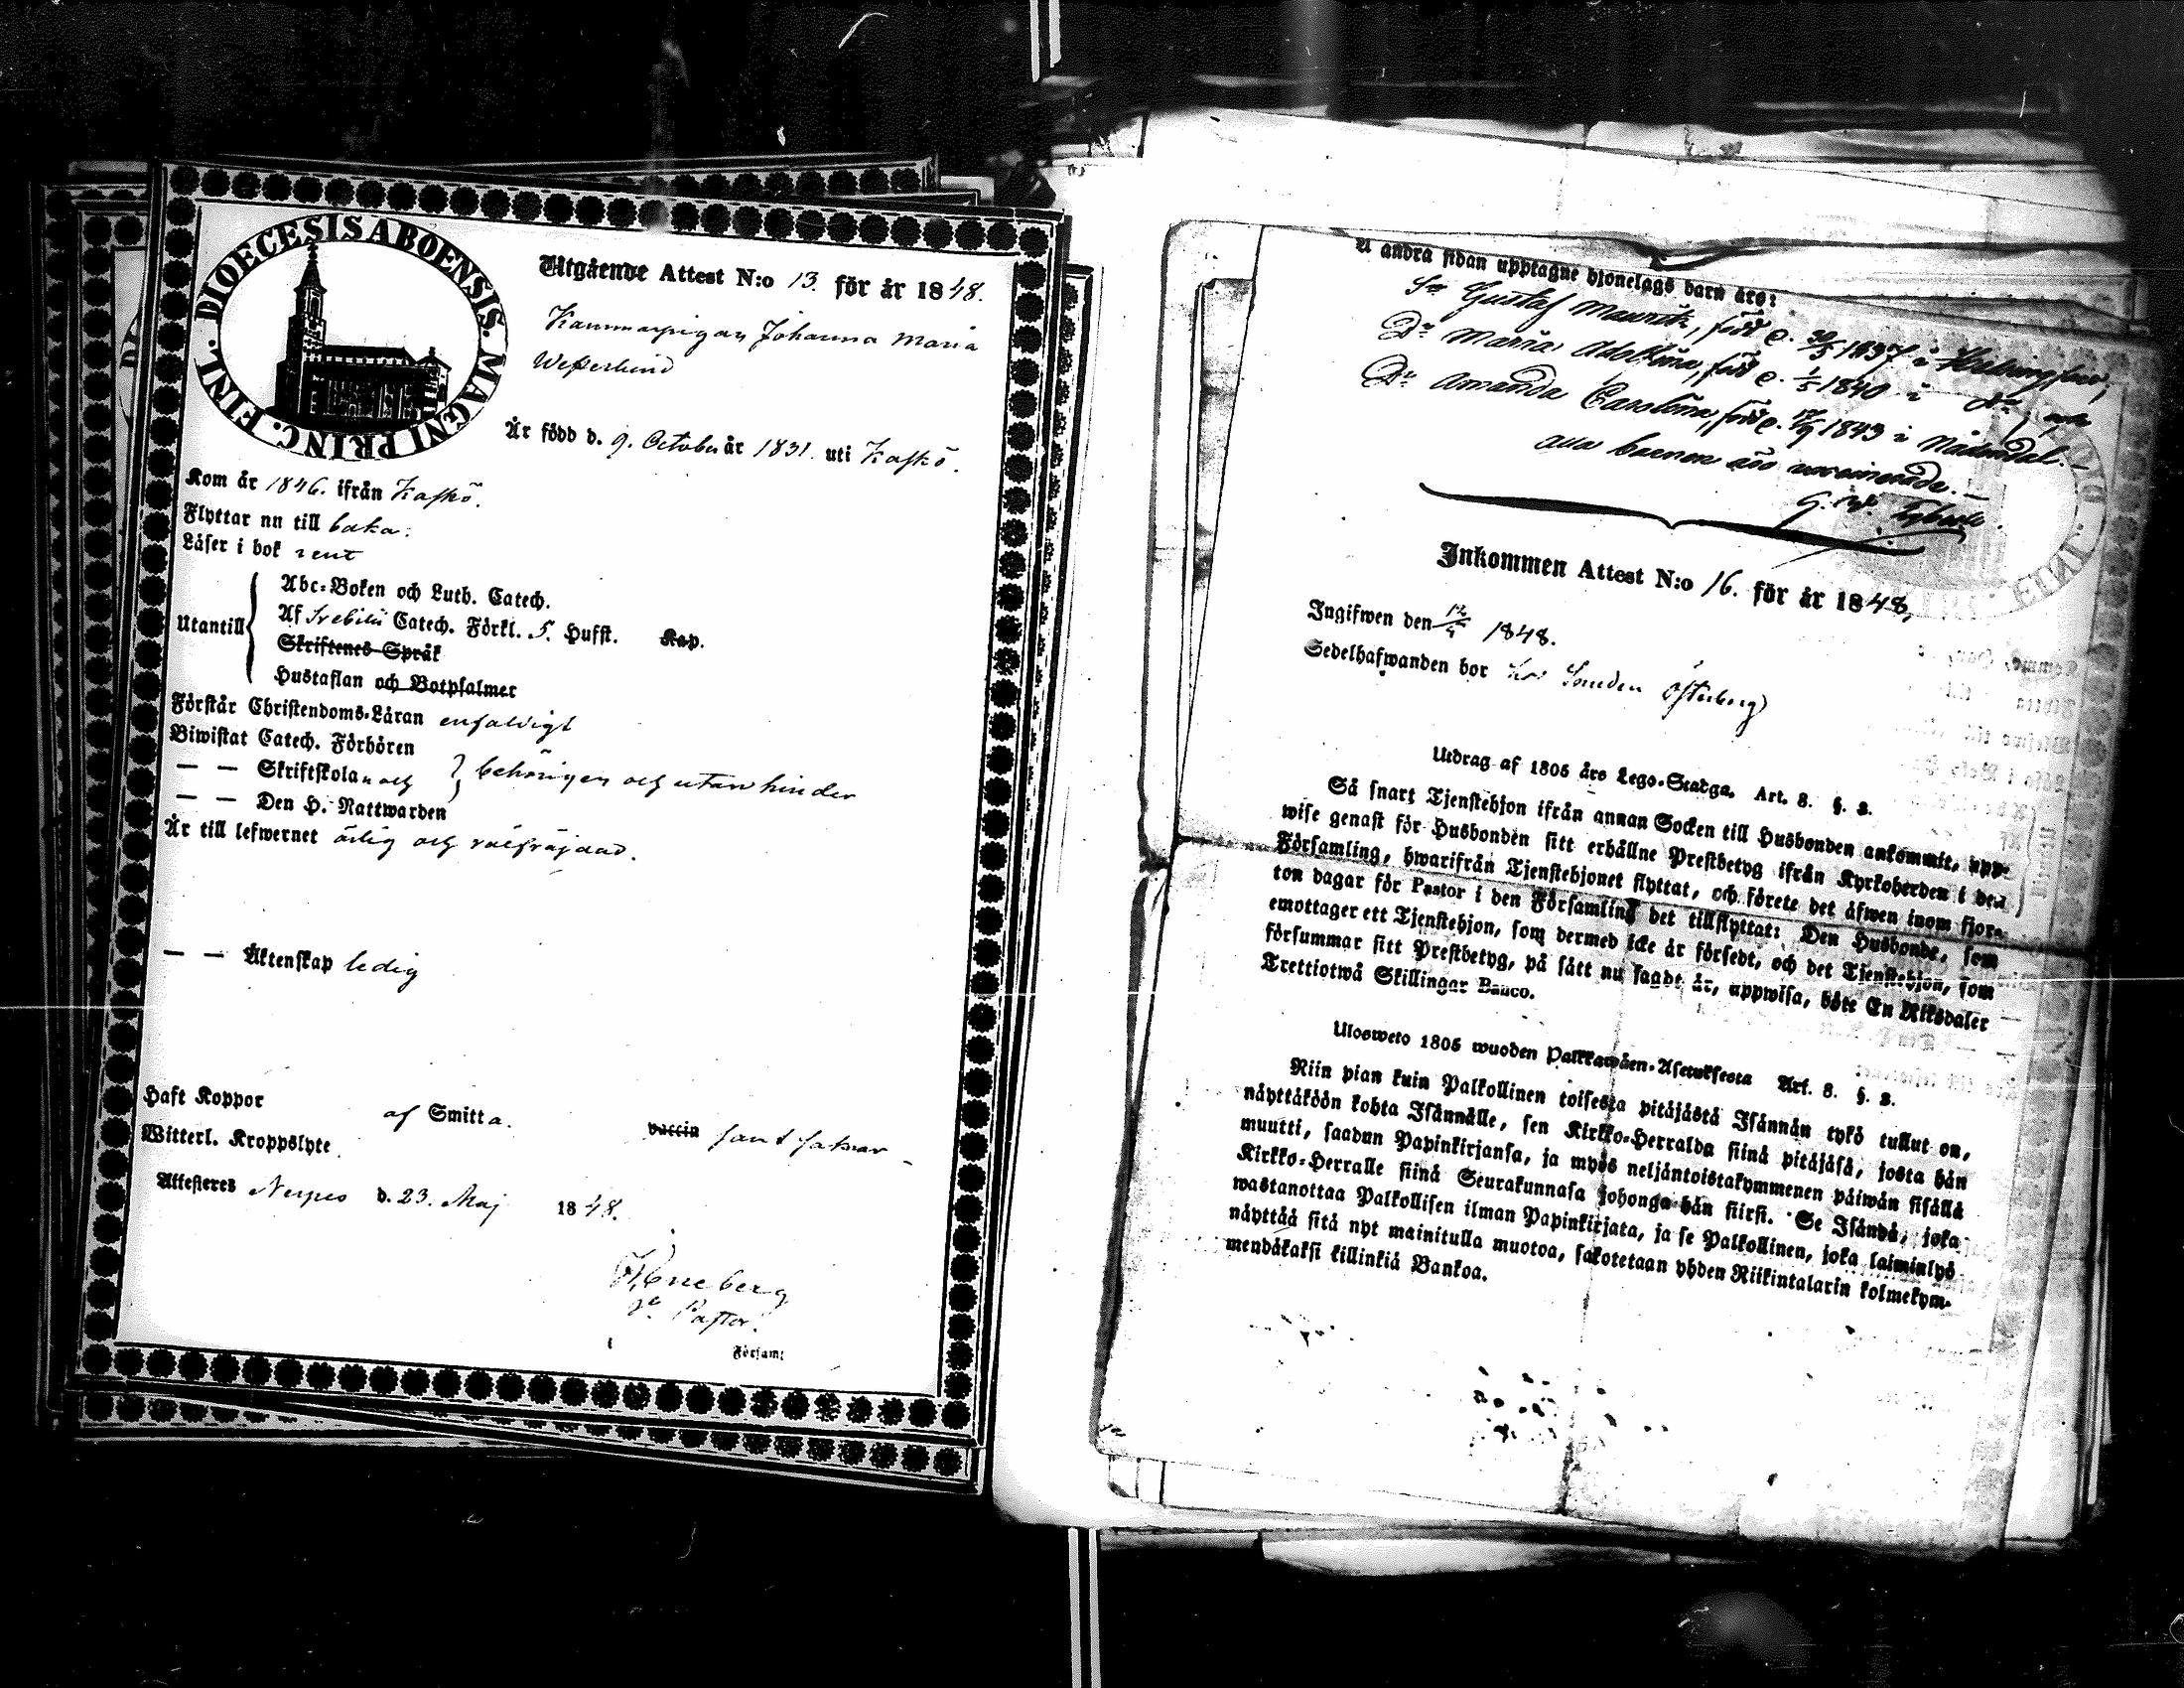 DIOECESIS ABOENSIS. MAGNI PRINC. FINL.
Utgående Attest N:o 13. för år 1848.
Kammarpigan Johanna Maria
Westerlund
Är född d. 9. October år 1831. uti Kaskö.
Kom år 1846. ifrån Kaskö.
Flyttar nu till baka.
Läser i bok rent
Utantill
Abc-Boken och Luth. Catech.
Af Svebilii Catech. Förkl. 5. Hufst. Kap.
Skriftenes Språk
Hustaflan och Botpsalmer
Förstår Christendoms-Läran enfaldigt
Biwistat Catech. Förhören
— — Skriftskolan och } behörigen och utan hinder
— — Den H. Nattwarden
Är till lefwernet ärlig och välfräjdad.
— — Äktenskap ledig
Haft Koppor af Smitta. vaccin
Witterl. Kroppslyte
Attesteres Nerpes d. 23. Maj 1848.
Pastor.
Försam:
Å andra sidan upptagne hjonelags barn äro:
Sn Gustaf Mauritz, född d. 30/5 1837 i Helsingfors,
Dr Maria Adolfina, född d. 1/5 1840 i Do, och
Dr Amanda Carolina, född d. 17/9 1843 i Nådendal.—
alla barnen äro vaccinerade.—
Inkommen Attest N:o 16. för år 1848,
Ingifwen den 12/4 1848.
Sedelhafwanden bor hos Smeden Österberg
Utdrag af 1805 års Lego-Stadga. Art. 8. §. 2.
Så snart Tjenstehjon ifrån annan Socken till Husbonden ankommit, upp-
wise genast för Husbonden sitt erhållne Prestbetyg ifrån Kyrkoherden i den
Församling, hwarifrån Tjenstehjonet flyttat, och förete det äfwen inom fjor-
ton dagar för Pastor i den Församling det tillflyttat: Den Husbonde, som
emottager ett Tjenstehjon, som dermed icke är försedt, och det Tjenstehjon, som
försummar sitt Prestbetyg, på sätt nu sagdt är, uppwisa, böte En Riksdaler
Trettiotwå Skillingar Banco.
Ulosweto 1805 wuoden Palkkawäen-Asetuksesta Art. 8. §. 2.
Niin pian kuin Palkollinen toisesta pitäjästä Isännän tykö tullut on,
näyttäköön kohta Isännälle, sen Kirkko-Herralda siinä pitäjäsä, josta hän
muutti, saadun Papinkirjansa, ja myös neljäntoistakymmenen päiwän sisällä
Kirkko-Herralle siinä Seurakunnasa johonga hän siirsi. Se Isändä, joka
wastanottaa Palkollisen ilman Papinkirjata, ja se Palkollinen, joka laiminlyö
näyttää sitä nyt mainitulla muotoa, sakotetaan yhden Riikintalarin kolmekym-
mendäkaksi killinkiä Bankoa.